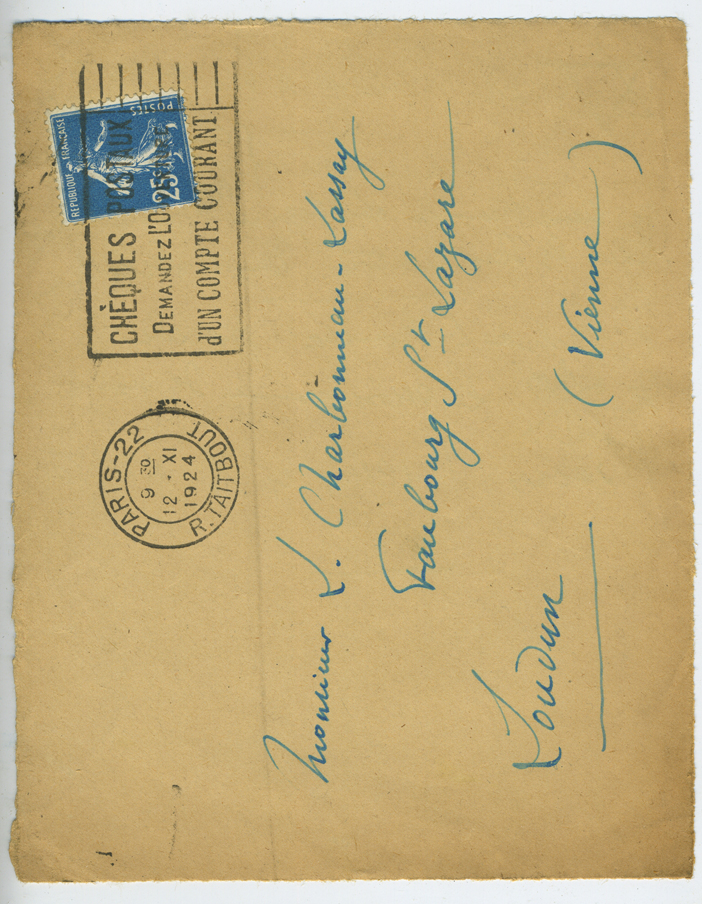 REPUBLIQUE FRANÇAISE
POSTES
25c
CHÈQUES POSTAUX
DEMANDEZ L'OUVERTURE
d'UN COMPTE COURANT
PARIS-22
9 30
12 - XI
1924
R. TAITBOUT
Monsieur L. Charbonneau-Lassay
Faubourg St Lazare
Loudun
(Vienne)